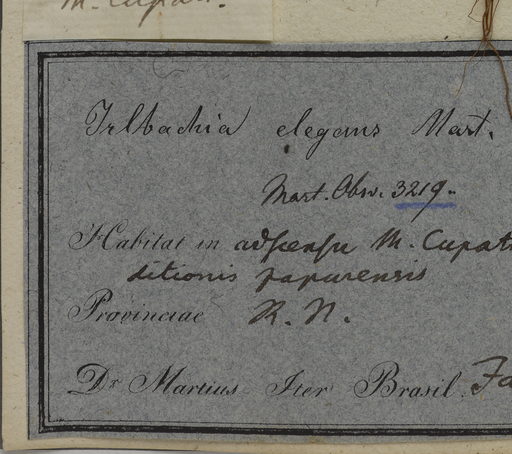 M. Cupati.
Irlbachia elegans Mart.
Mart. Obs. 3219.
Habitat in adscensu M. Cupati
ditionis japurensis
Provinciae R. N.
Dr Martius Iter Brasil.